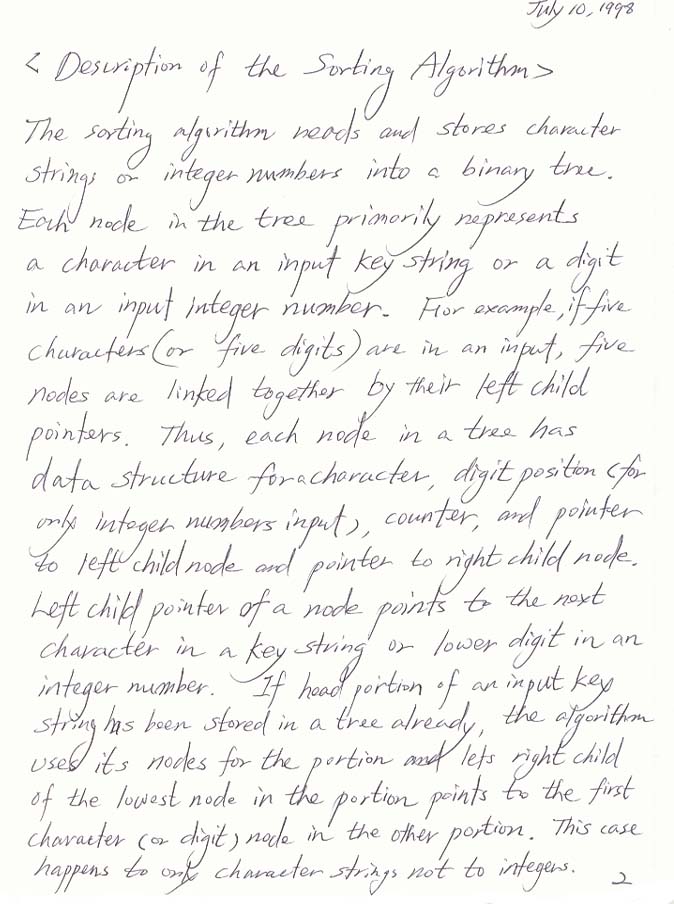 July 10, 1998
< Description of the Sorting Algorithm>
The sorting algorithm reads and stores character
strings or integer numbers into a binary tree.
Each node in the tree primarily represents
a character in an input key string or a digit
in an input integer number. For example, if five
characters (or five digits) are in an input, five
nodes are linked together by their left child
pointers. Thus, each node in a tree has
data structure for a character, digit position (for
only integer numbers input), counter, and pointer
to left child node and pointer to right child node.
Left child pointer of a node points to the next
character in a key string or lower digit in an
integer number. If head portion of an input key
string has been stored in a tree already, the algorithm
uses its nodes for the portion and lets right child
of the lowest node in the portion points to the first
character (or digit) node in the other portion. This case
happens to only character strings not to integers.
2